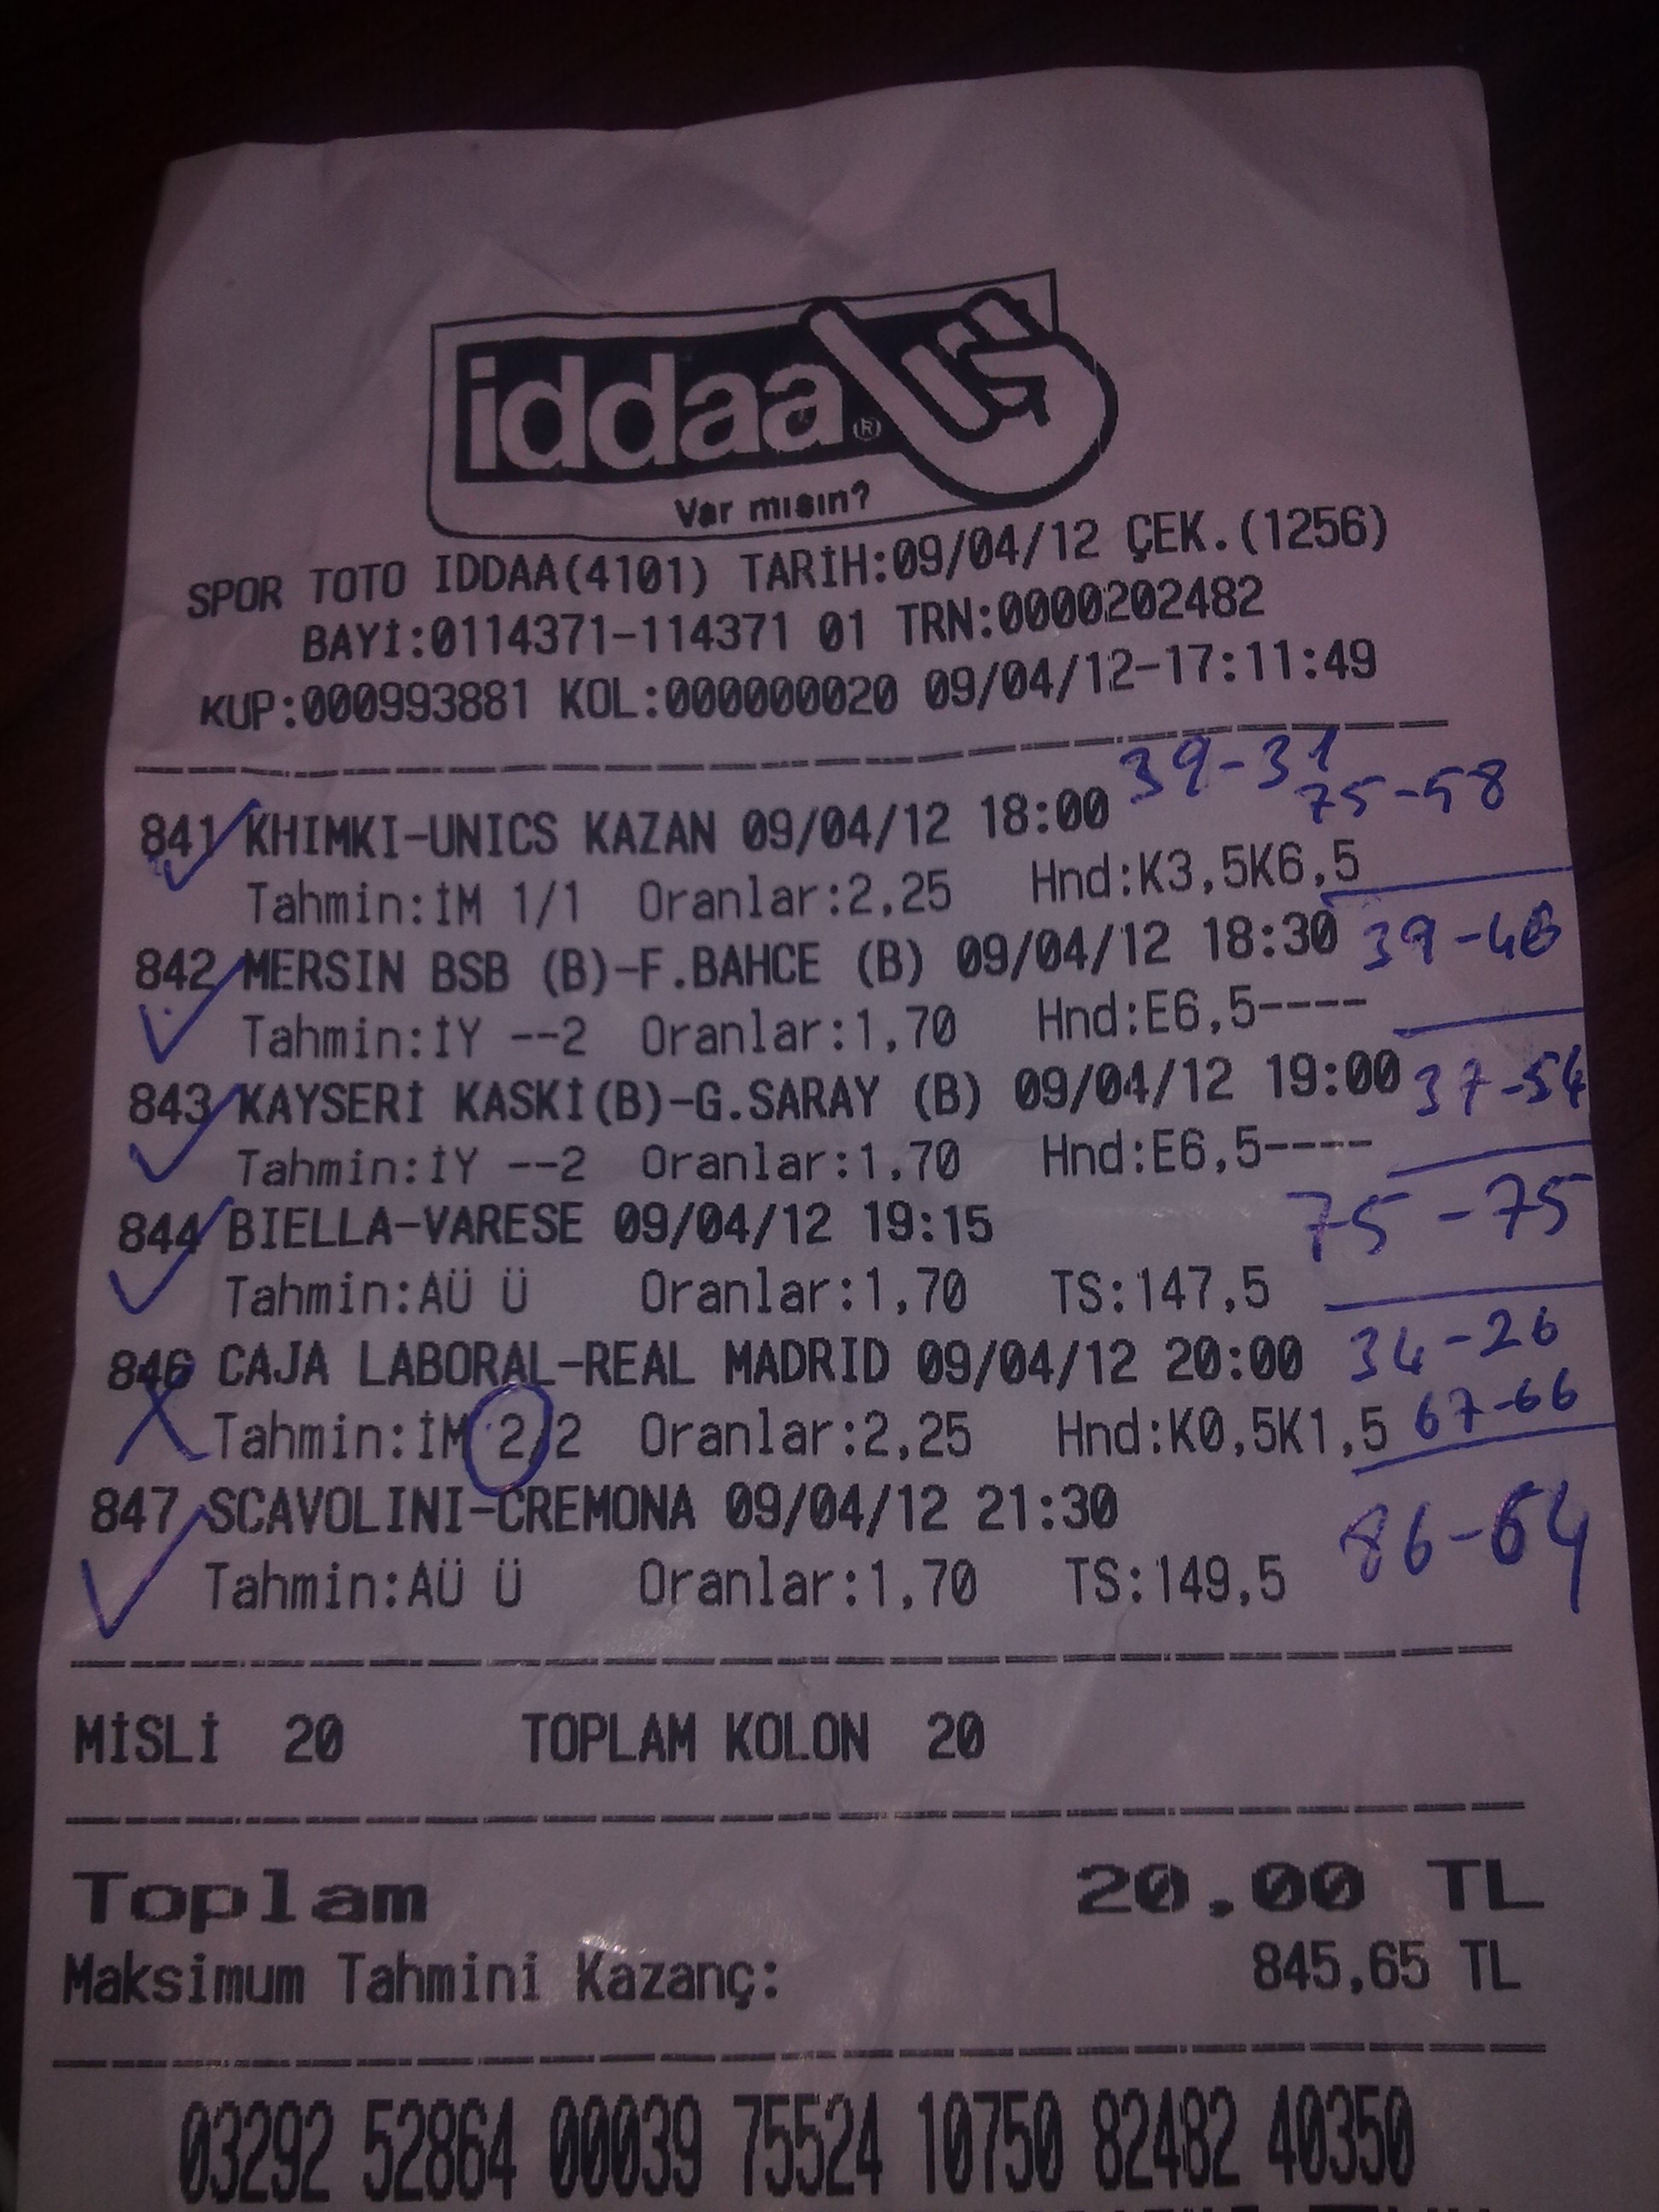 iddaa®
Var mısın?
SPOR TOTO IDDAA(4101) TARİH:09/04/12 ÇEK.(1256)
BAYİ:0114371-114371 01 TRN:0000202482
KUP:000993881 KOL:000000020 09/04/12-17:11:49
39-31
841 KHIMKI-UNICS KAZAN 09/04/12 18:00 75-58
Tahmin:İM 1/1 Oranlar:2,25 Hnd:K3,5K6,5
842 MERSIN BSB (B)-F.BAHCE (B) 09/04/12 18:30 39-48
Tahmin:İY --2 Oranlar:1,70 Hnd:E6,5----
843 KAYSERİ KASKİ(B)-G.SARAY (B) 09/04/12 19:00 37-54
Tahmin:İY --2 Oranlar:1,70 Hnd:E6,5----
844 BIELLA-VARESE 09/04/12 19:15 75-75
Tahmin:AÜ Ü Oranlar:1,70 TS:147,5
846 CAJA LABORAL-REAL MADRID 09/04/12 20:00 34-26
Tahmin:İM 2/2 Oranlar:2,25 Hnd:K0,5K1,5 67-66
847 SCAVOLINI-CREMONA 09/04/12 21:30 86-64
Tahmin:AÜ Ü Oranlar:1,70 TS:149,5
MİSLİ 20 TOPLAM KOLON 20
Toplam 20.00 TL
Maksimum Tahmini Kazanç: 845,65 TL
03292 52864 00039 75524 10750 82482 40350